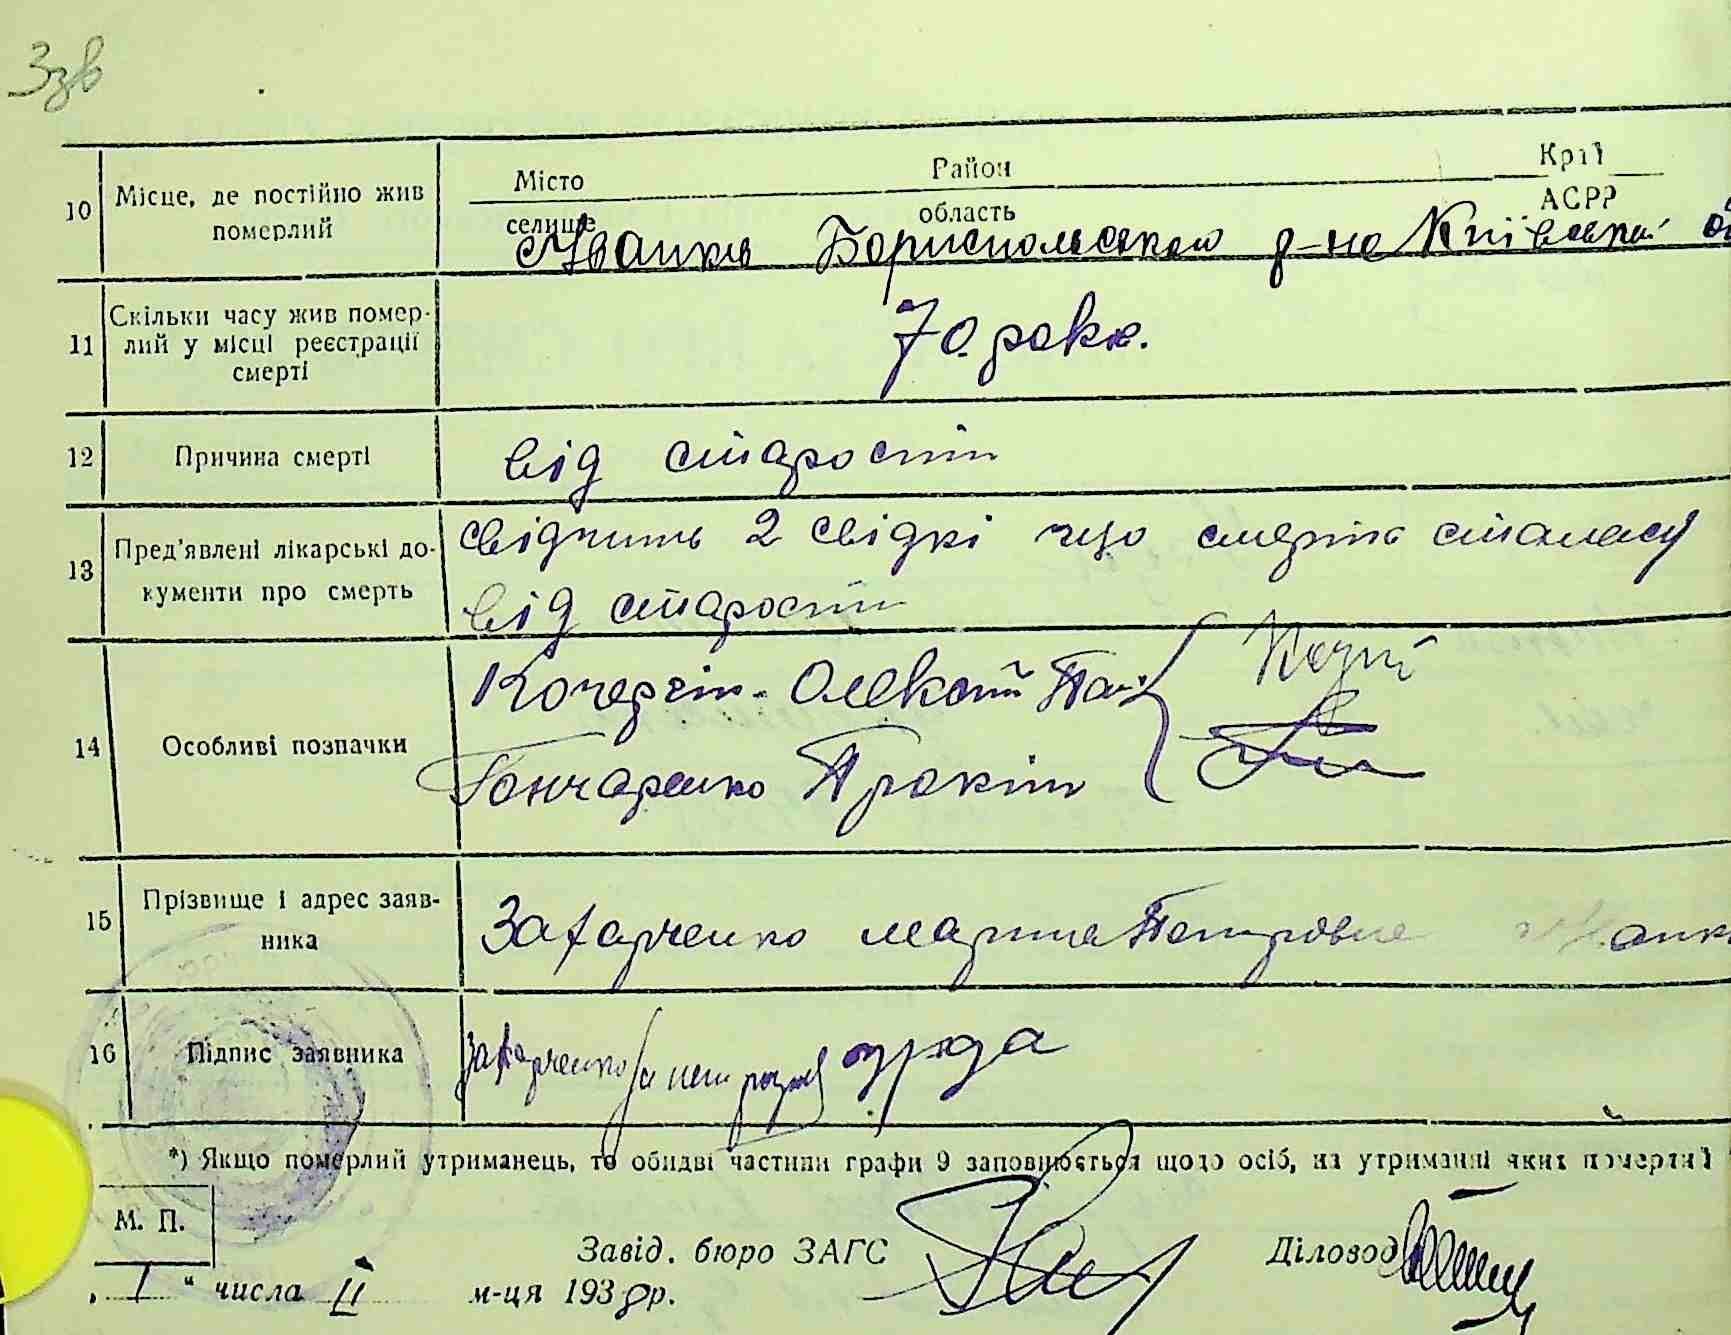 Ззв
10 Місце, де постійно жив померлий
Місто Район Край
селище область АСРР
с Іванків Бориспольського р-на Київської об
11 Скільки часу жив помер-
лий у місці реєстрації
смерті
70 роки.
12 Причина смерті від старости
13 Пред'явлені лікарські до-
кументи про смерть
свідчать 2 свідкі що смерть сталася
від старости
14 Особливі позначки
Кочергін Олексій Пав
Гончаренко Прокіп
15 Прізвище і адрес заяв-
ника
Захарченко Марина Петровна
16 Підпис заявника
Захарченко
*) Якщо померлий утриманець, то обидві частини графи 9 заповнюється щодо осіб, на утриманні яких померлий
М. П.
Завід. бюро ЗАГС Діловод
„ 1 “ числа II м-ця 1938 р.